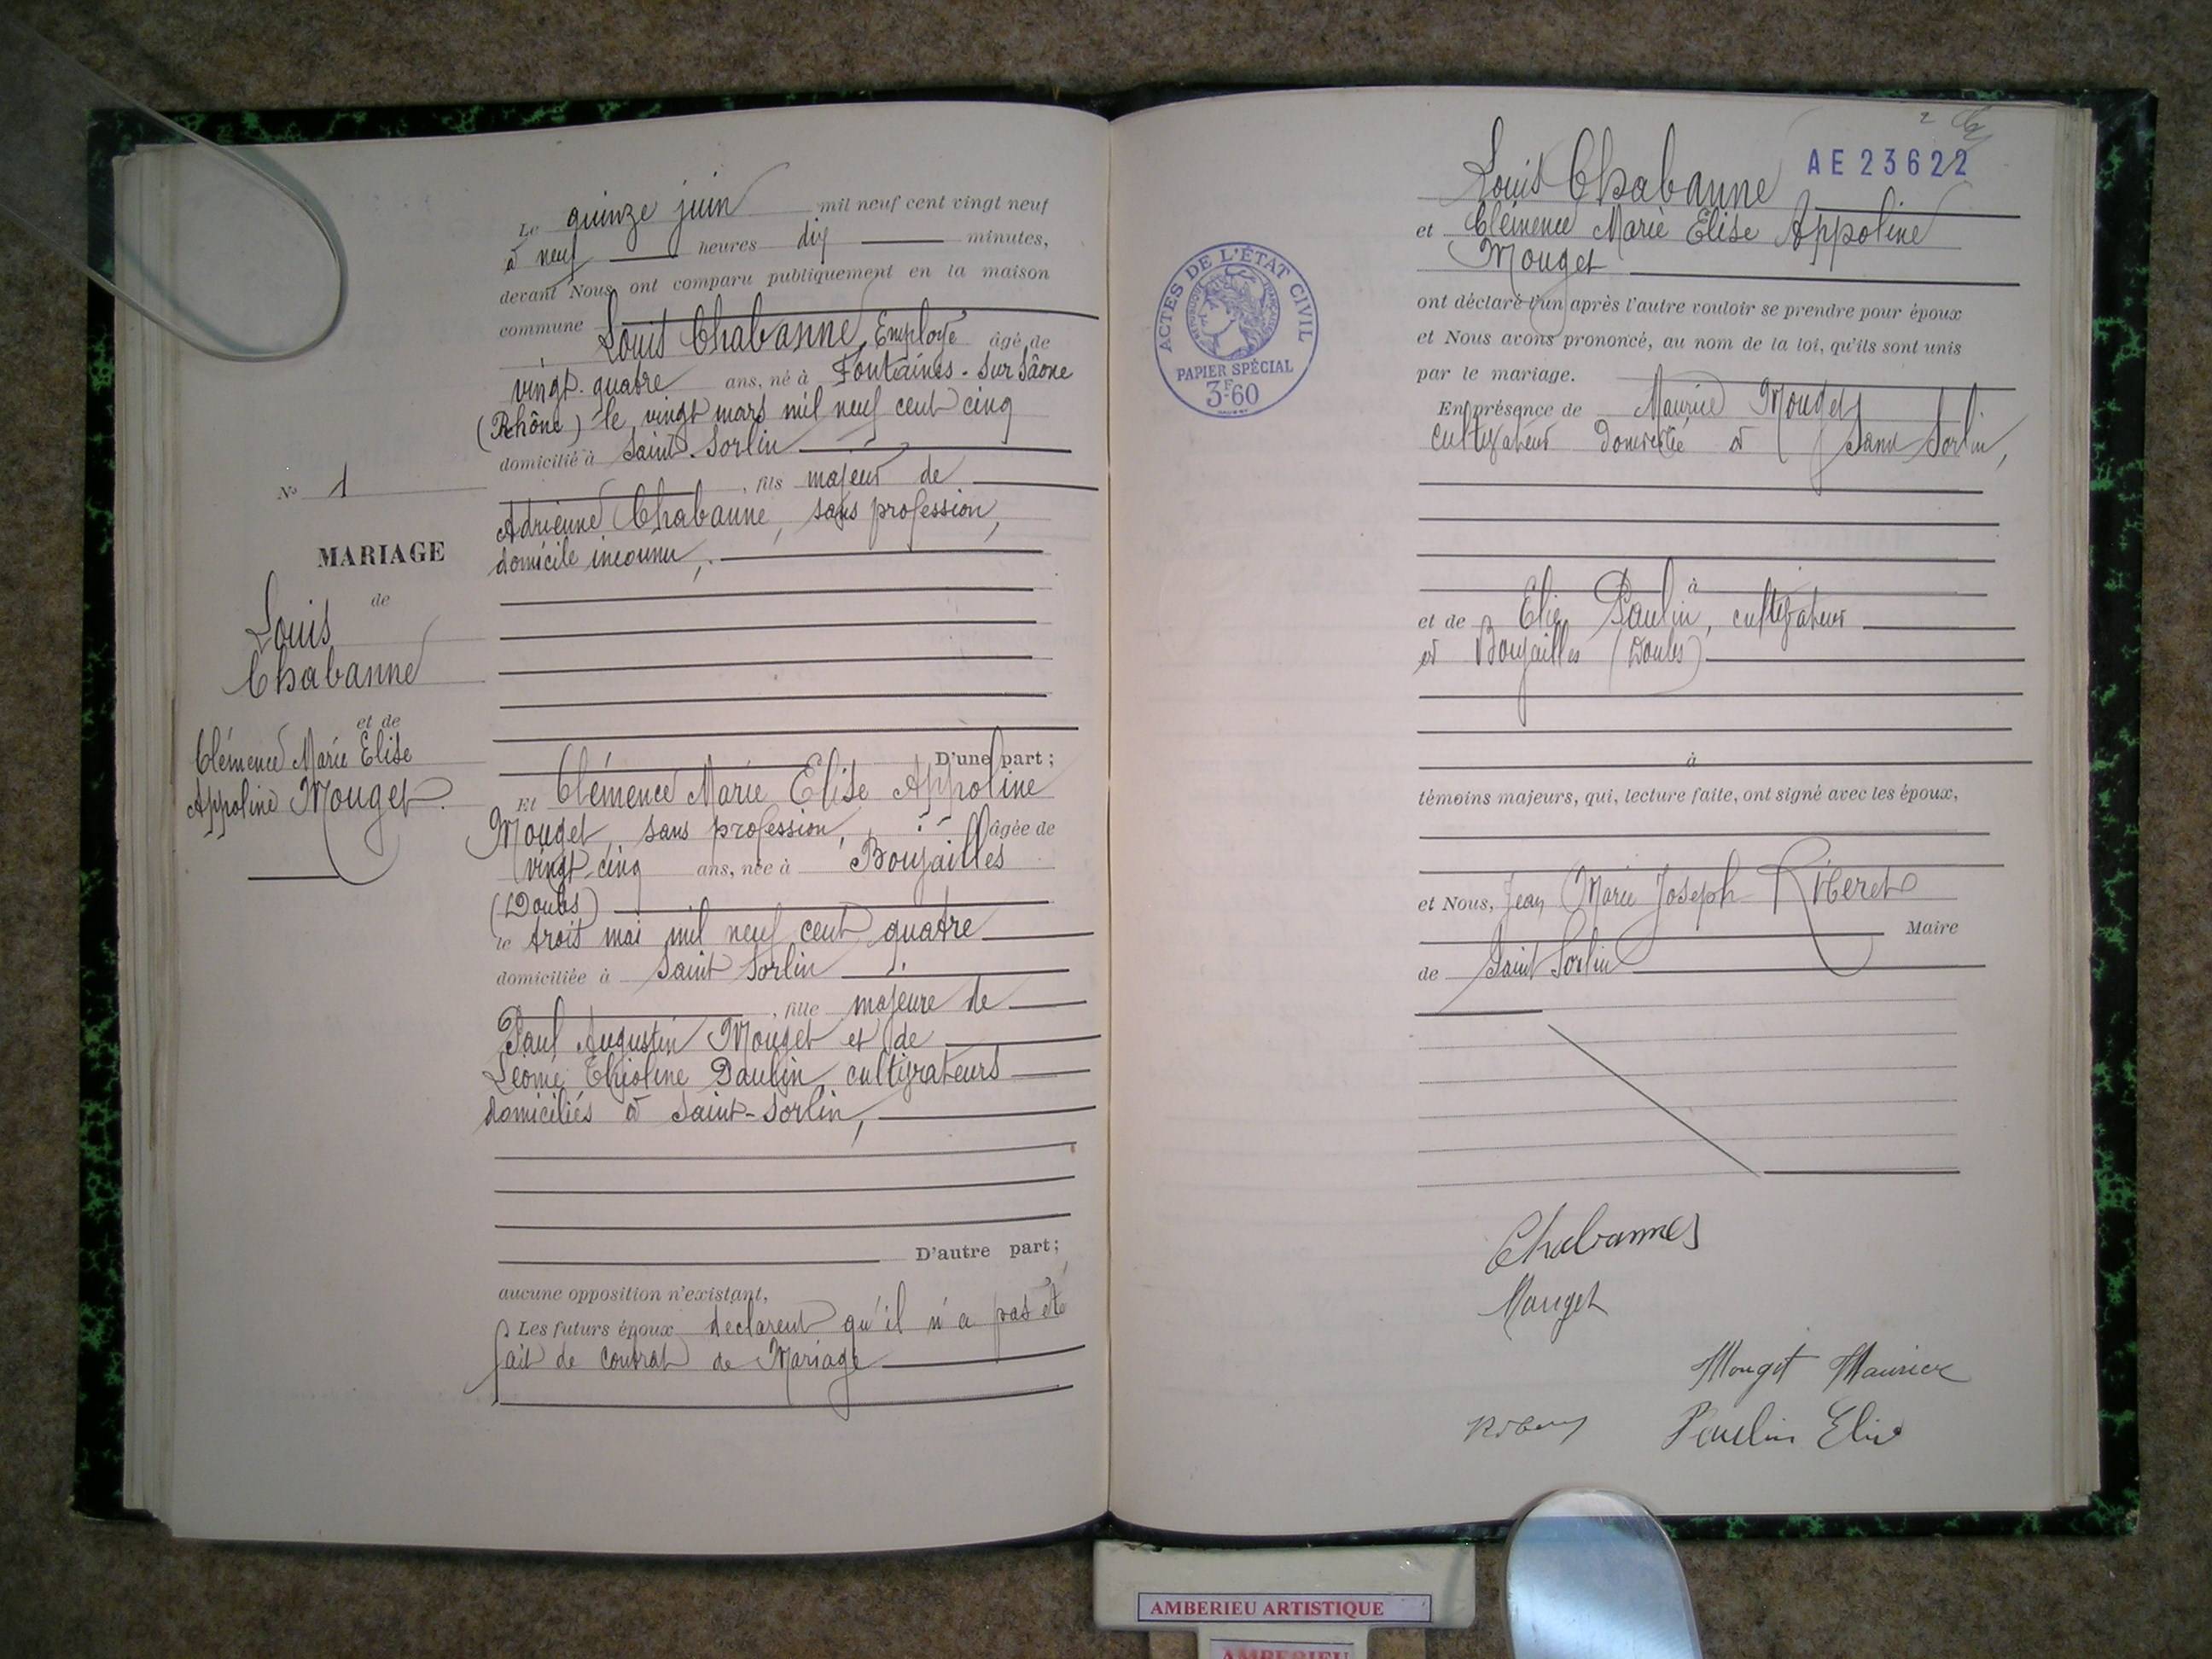 Le quinze juin mil neuf cent vingt neuf
à neuf heures dix minutes,
devant Nous ont comparu publiquement en la maison
commune
Louis Chabanne, Employé âgé de
vingt-quatre ans, né à Fontaines-sur Sâone
(Rhône) le vingt mars mil neuf cent cinq
domicilié à Saint-Sorlin
, fils majeur de
Adrienne Chabanne, sans profession,
domicile inconnu,
D'une part;
Et Clémence Marie Elise Appoline
Mouget, sans profession, âgée de
vingt-cinq ans, née à Boujailles
(Doubs)
le trois mai mil neuf cent quatre
domiciliée à Saint Sorlin
, fille majeure de
Paul Augustin Mouget et de
Paulin, cultivateurs
domiciliés à Saint-Sorlin,
D'autre part;
aucune opposition n'existant,
Les futurs époux declarent qu'il n'a pas été
fait de contrat de Mariage
No 1
MARIAGE
de
Louis
Chabanne
et de
Clémence Marie Elise
Appoline Mouget.
AE 23622
Louis Chabanne
et Clémence Marie Elise Appoline
Mouget
ont déclaré l'un après l'autre vouloir se prendre pour époux
et Nous avons prononcé, au nom de la loi, qu'ils sont unis
par le mariage.
En présence de Maurice Mouget
cultivateur domicilié à Saint Sorlin,
à
et de Elie Paulin, cultivateur
à Boujailles (Doubs)
à
témoins majeurs, qui, lecture faite, ont signé avec les époux,
et Nous, Jean Marie Joseph Riberet
Maire
de Saint Sorlin
ACTES DE L'ÉTAT CIVIL
RÉPUBLIQUE FRANÇAISE
PAPIER SPÉCIAL
3F60
Chabannes
Mouget
Mouget Maurice
Paulin Elie
AMBERIEU ARTISTIQUE
AMBERIEU